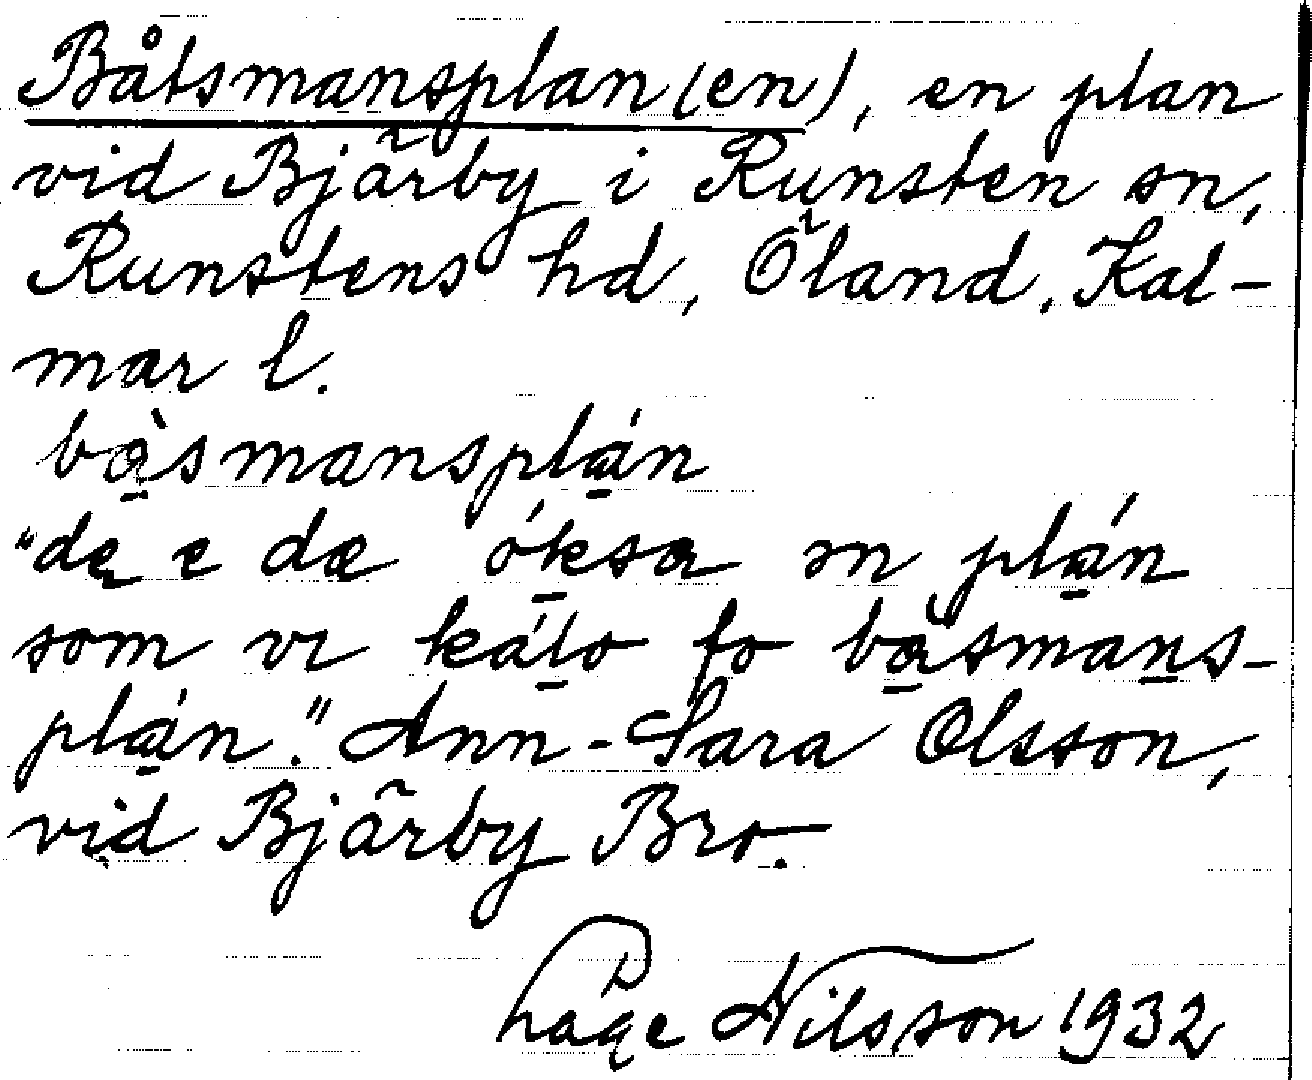 Båtsmansplan(en), en plan
vid Bjärby i Runsten sn,
Runstens hd, Öland. Kal-
mar l.
bå̀smansplán
"dę e dæ óksa ən plán
som vɪ kálo fo bå̀smans-
plán." Ann-Sara Olsson,
vid Bjärby Bro.
Nilsson 1932